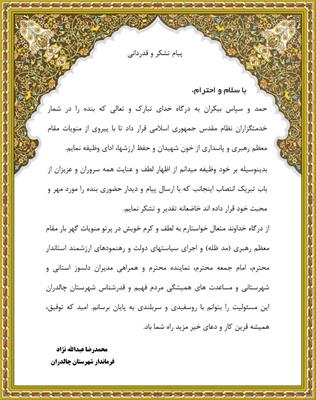 پیام تشکر و قدردانی
با سلام و احترام،
حمد و سپاس بیکران به درگاه خدای تبارک و تعالی که بنده را در شمار
خدمتگزاران نظام مقدس جمهوری اسلامی قرار داد تا با پیروی از منویات مقام
معظم رهبری و پاسداری از خون شهیدان و حفظ ارزشها، ادای وظیفه نمایم.
بدینوسیله بر خود وظیفه میدانم از اظهار لطف و عنایت همه سروران و عزیزان از
باب تبریک انتصاب اینجانب که با ارسال پیام و دیدار حضوری بنده را مورد مهر و
محبت خود قرار داده اند خاضعانه تقدیر و تشکر نمایم.
از درگاه خداوند متعال خواستارم به لطف و کرم خویش در پرتو منویات گهر بار مقام
معظم رهبری (مد ظله) و اجرای سیاستهای دولت و رهنمودهای ارزشمند استاندار
محترم، امام جمعه محترم، نماینده محترم و همراهی مدیران دلسوز استانی و
شهرستانی و مساعدت های همیشگی مردم فهیم و قدرشناس شهرستان چالدران
این مسئولیت را بتوانم با روسفیدی و سربلندی به پایان برسانم. امید که توفیق،
همیشه قرین کار و دعای خیر مزید راه شما باد.
محمدرضا عبدالله نژاد
فرماندار شهرستان چالدران